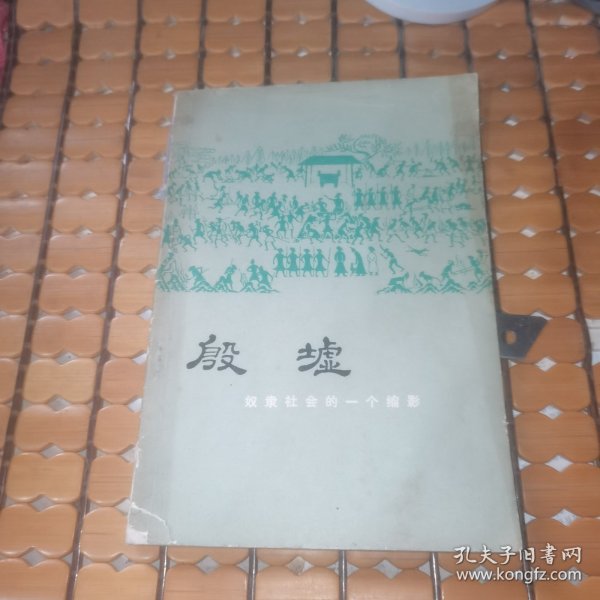 殷墟
奴隶社会的一个缩影
孔夫子旧書网
www.kongfz.com